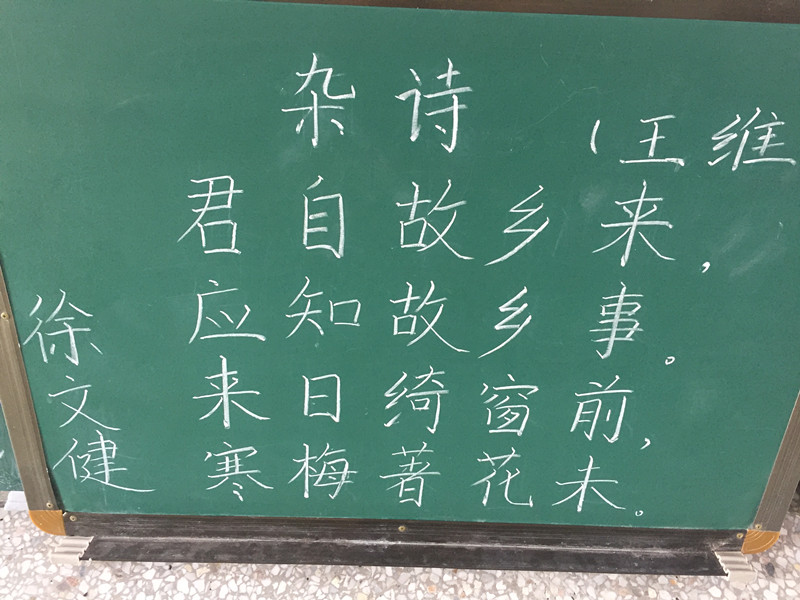 杂诗
(王维
君自故乡来,
应知故乡事。
来日绮窗前,
寒梅著花未。
徐文健